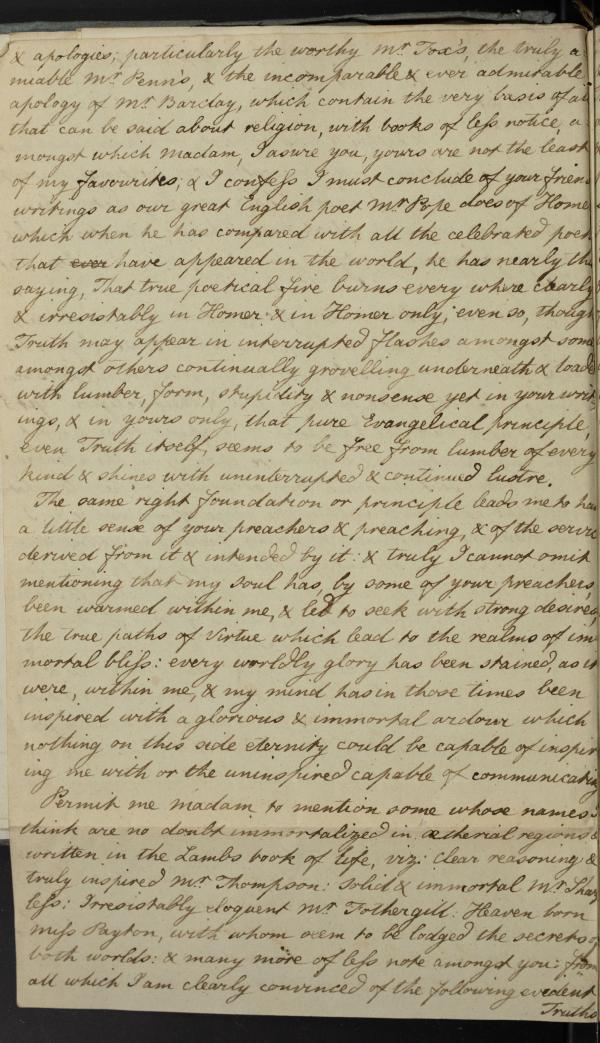 & apologies; particularly the worthy Mr. Fox's, the truly a
miable Mr. Penns, & the incomparable & ever admirable
apology of Mr. Barclay, which contain the very basis of al
that can be said about religion, with books of less notice, a
mongst which Madam, I asure you, yours are not the least
of my favourites; & I confess I must conclude of your frien
writings as our great English poet Mr. Pope does of Home
which when he has compared with all the celebrated poet
that ever have appeared in the world, he has nearly th
saying, That true poetical fire burns every where clearly
& irresistably in Homer & in Homer only; even so, though
Truth may appear in interrupted flashes amongst some
amongst others continually grovelling underneath & loade
with lumber, form, stupidity & nonsense yet in your writ
ings, & in yours only, that pure Evangelical principle,
even Truth itself, seems to be free from lumber of every
kind & shines with uninterrupted & continued lustre.
The same right foundation or principle leads me to hav
a little sense of your preachers & preaching, & of the servic
derived from it & intended by it: & truly I cannot omit
mentioning that my soul has, by some of your preachers,
been warmed within me, & led to seek with strong desires,
the true paths of Virtue which lead to the realms of im
mortal bliss: every worldly glory has been stained, as it
were, within me, & my mind has in those times been
inspired with a glorious & immortal ardour which
nothing on this side eternity could be capable of inspir
ing me with or the uninspired capable of communicating
Permit me madam to mention some whose names I
think are no doubt immortalized in ætherial regions &
written in the Lambs book of life, viz: clear reasoning &
truly inspired Mr. Thompson: solid & immortal Mr. Shar
less: Irresistably eloquent Mr. Fothergill: Heaven born
miss Payton, with whom seem to be lodged the secrets of
both worlds: & many more of less note amongst you: from
all which I am clearly convinced of the following evedent
Truths